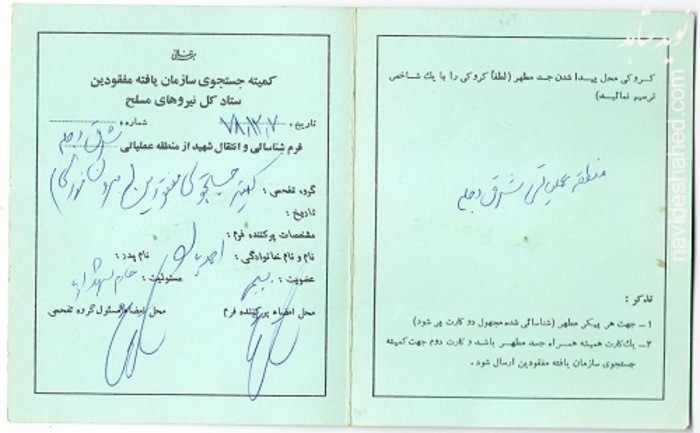 بسمه تعالی
کمیته جستجوی سازمان یافته مفقودین
ستاد کل نیروهای مسلح
تاریخ : ۷۸٫۱۲٫۷ شماره :
فرم شناسائی و انتقال شهید از منطقه عملیاتی : شرق دجله
گروه تفحص : کمیته جستجوی مفقودین
تاریخ :
مشخصات پرکننده فرم :
نام و نام خانوادگی : نام پدر :
عضویت : بسیجی مسئولیت :
محل امضاء پرکننده فرم محل امضاء مسئول گروه تفحص
نوید شاهد
کروکی محل پیدا شدن جسد مطهر (لطفاً کروکی را با یك شاخص
ترسیم نمائید)
منطقه عملیاتی شرق دجله
تذکر :
۱ــ جهت هر پیکر مطهر (شناسائی شده مجهول دو کارت پر شود)
۲ــ یك کارت همیشه همراه جسد مطهر باشد و کارت دوم جهت کمیته
جستجوی سازمان یافته مفقودین ارسال شود.
navideshahed.com